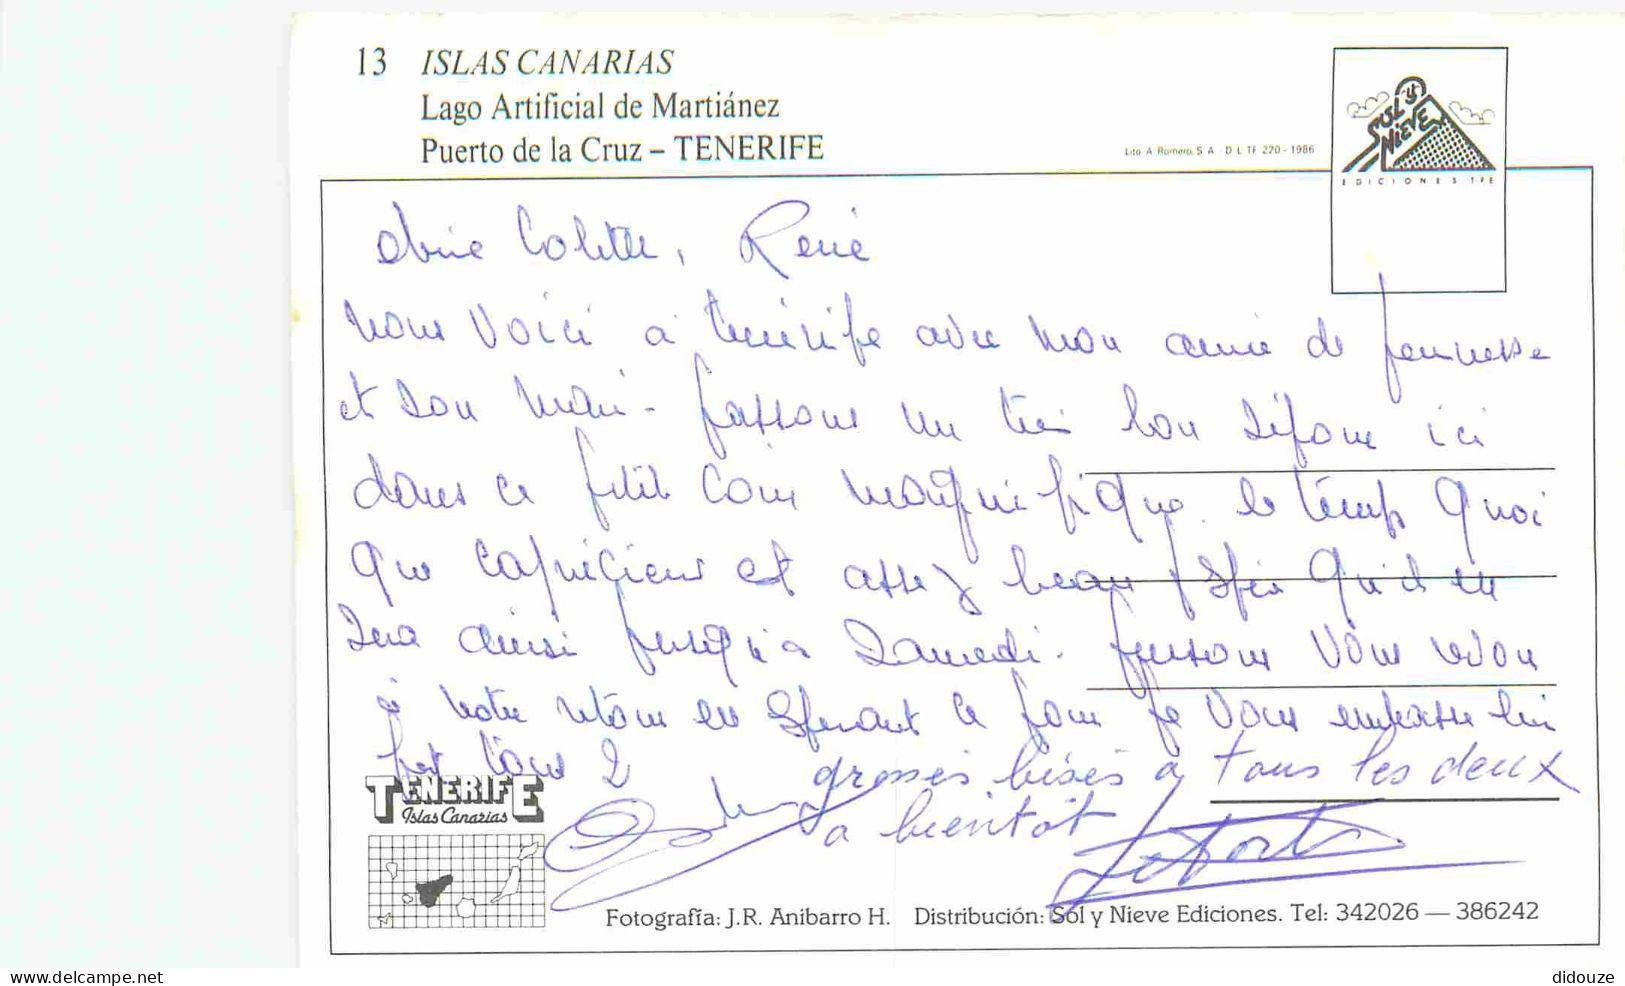 13 ISLAS CANARIAS
Lago Artificial de Martiánez
Puerto de la Cruz – TENERIFE
Lito A Romero, S A D L TF 220 - 1986
SOL Y NIEVE
EDICIONES TFE
Colette, René
nous voici à ténérife avec mon amie de jeunesse
et son mari - passons un très bon séjour ici
dans ce petit coin magnifique. le temps quoi
que capricieux est assez beau espér qu'il en
sera ainsi jusqu'a Samedi. pensons vous revoir
à notre retour en espérant ce jour je vous embrasse bien
fort tous 2
grosses bises a tous les deux
a bientôt
TENERIFE
Islas Canarias
Fotografía: J.R. Anibarro H. Distribución: Sol y Nieve Ediciones. Tel: 342026 — 386242
www.delcampe.net
didouze